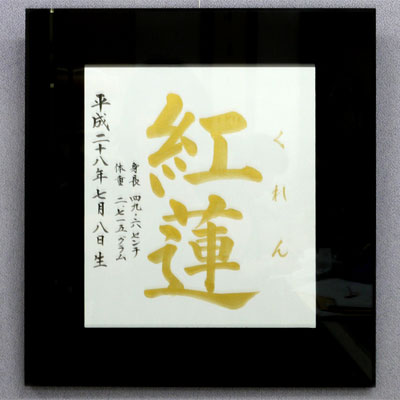 くれん
紅蓮
身長 四九・六センチ
体重 二、七一五グラム
平成二十八年七月八日生